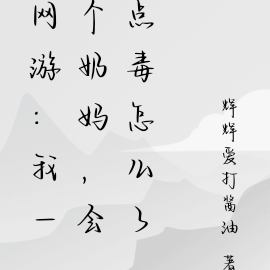 网游：我一
个奶妈，会
点毒怎么了
爱打酱油 著